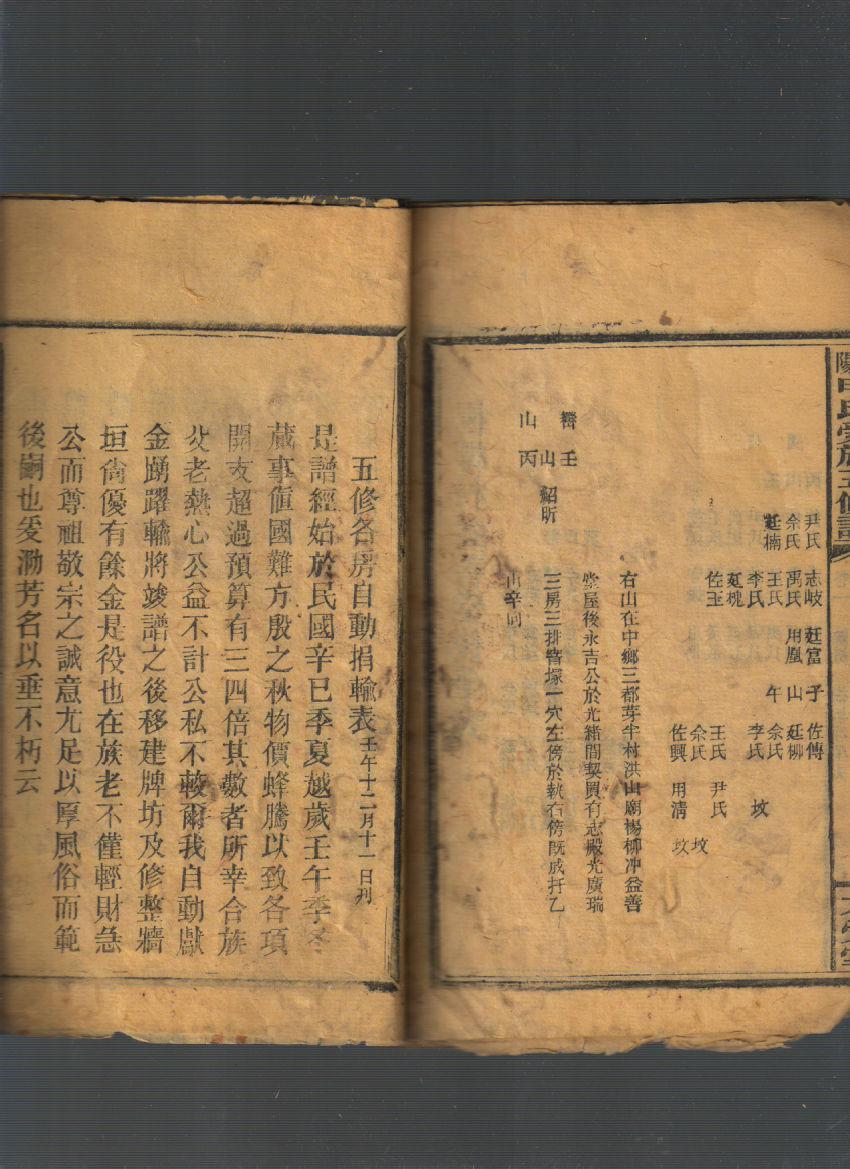 尹氏 志岐 廷富 子 佐傳
佘氏 禹氏 用凰 山 廷柳
廷楠 王氏 午 佘氏
李氏 李氏 坟
廷槐
佐玉 王氏 尹氏
佘氏 坟
佐興 用清 坟
右山在中鄉三都芽羋村洪山廟楊柳冲益善
堂屋後永吉公於光緒間契買有志殿光廣瑞
壬
山 紹昕 三房三排管塚一穴左傍於執右傍既成扦乙
山 丙 山辛向
五修各房自動捐輸表 壬午十二月十一日刋
是譜經始於民國辛巳季夏越歲壬午季冬
蕆事值國難方殷之秋物價蜂騰以致各項
開支超過預算有三四倍其數者所幸合族
父老熱心公益不計公私不較爾我自動獻
金踴躍輸將竣譜之後移建牌坊及修整牆
垣尙優有餘金是役也在族老不僅輕財急
公而尊祖敬宗之誠意尤足以厚風俗而範
後嗣也爰泐芳名以垂不朽云